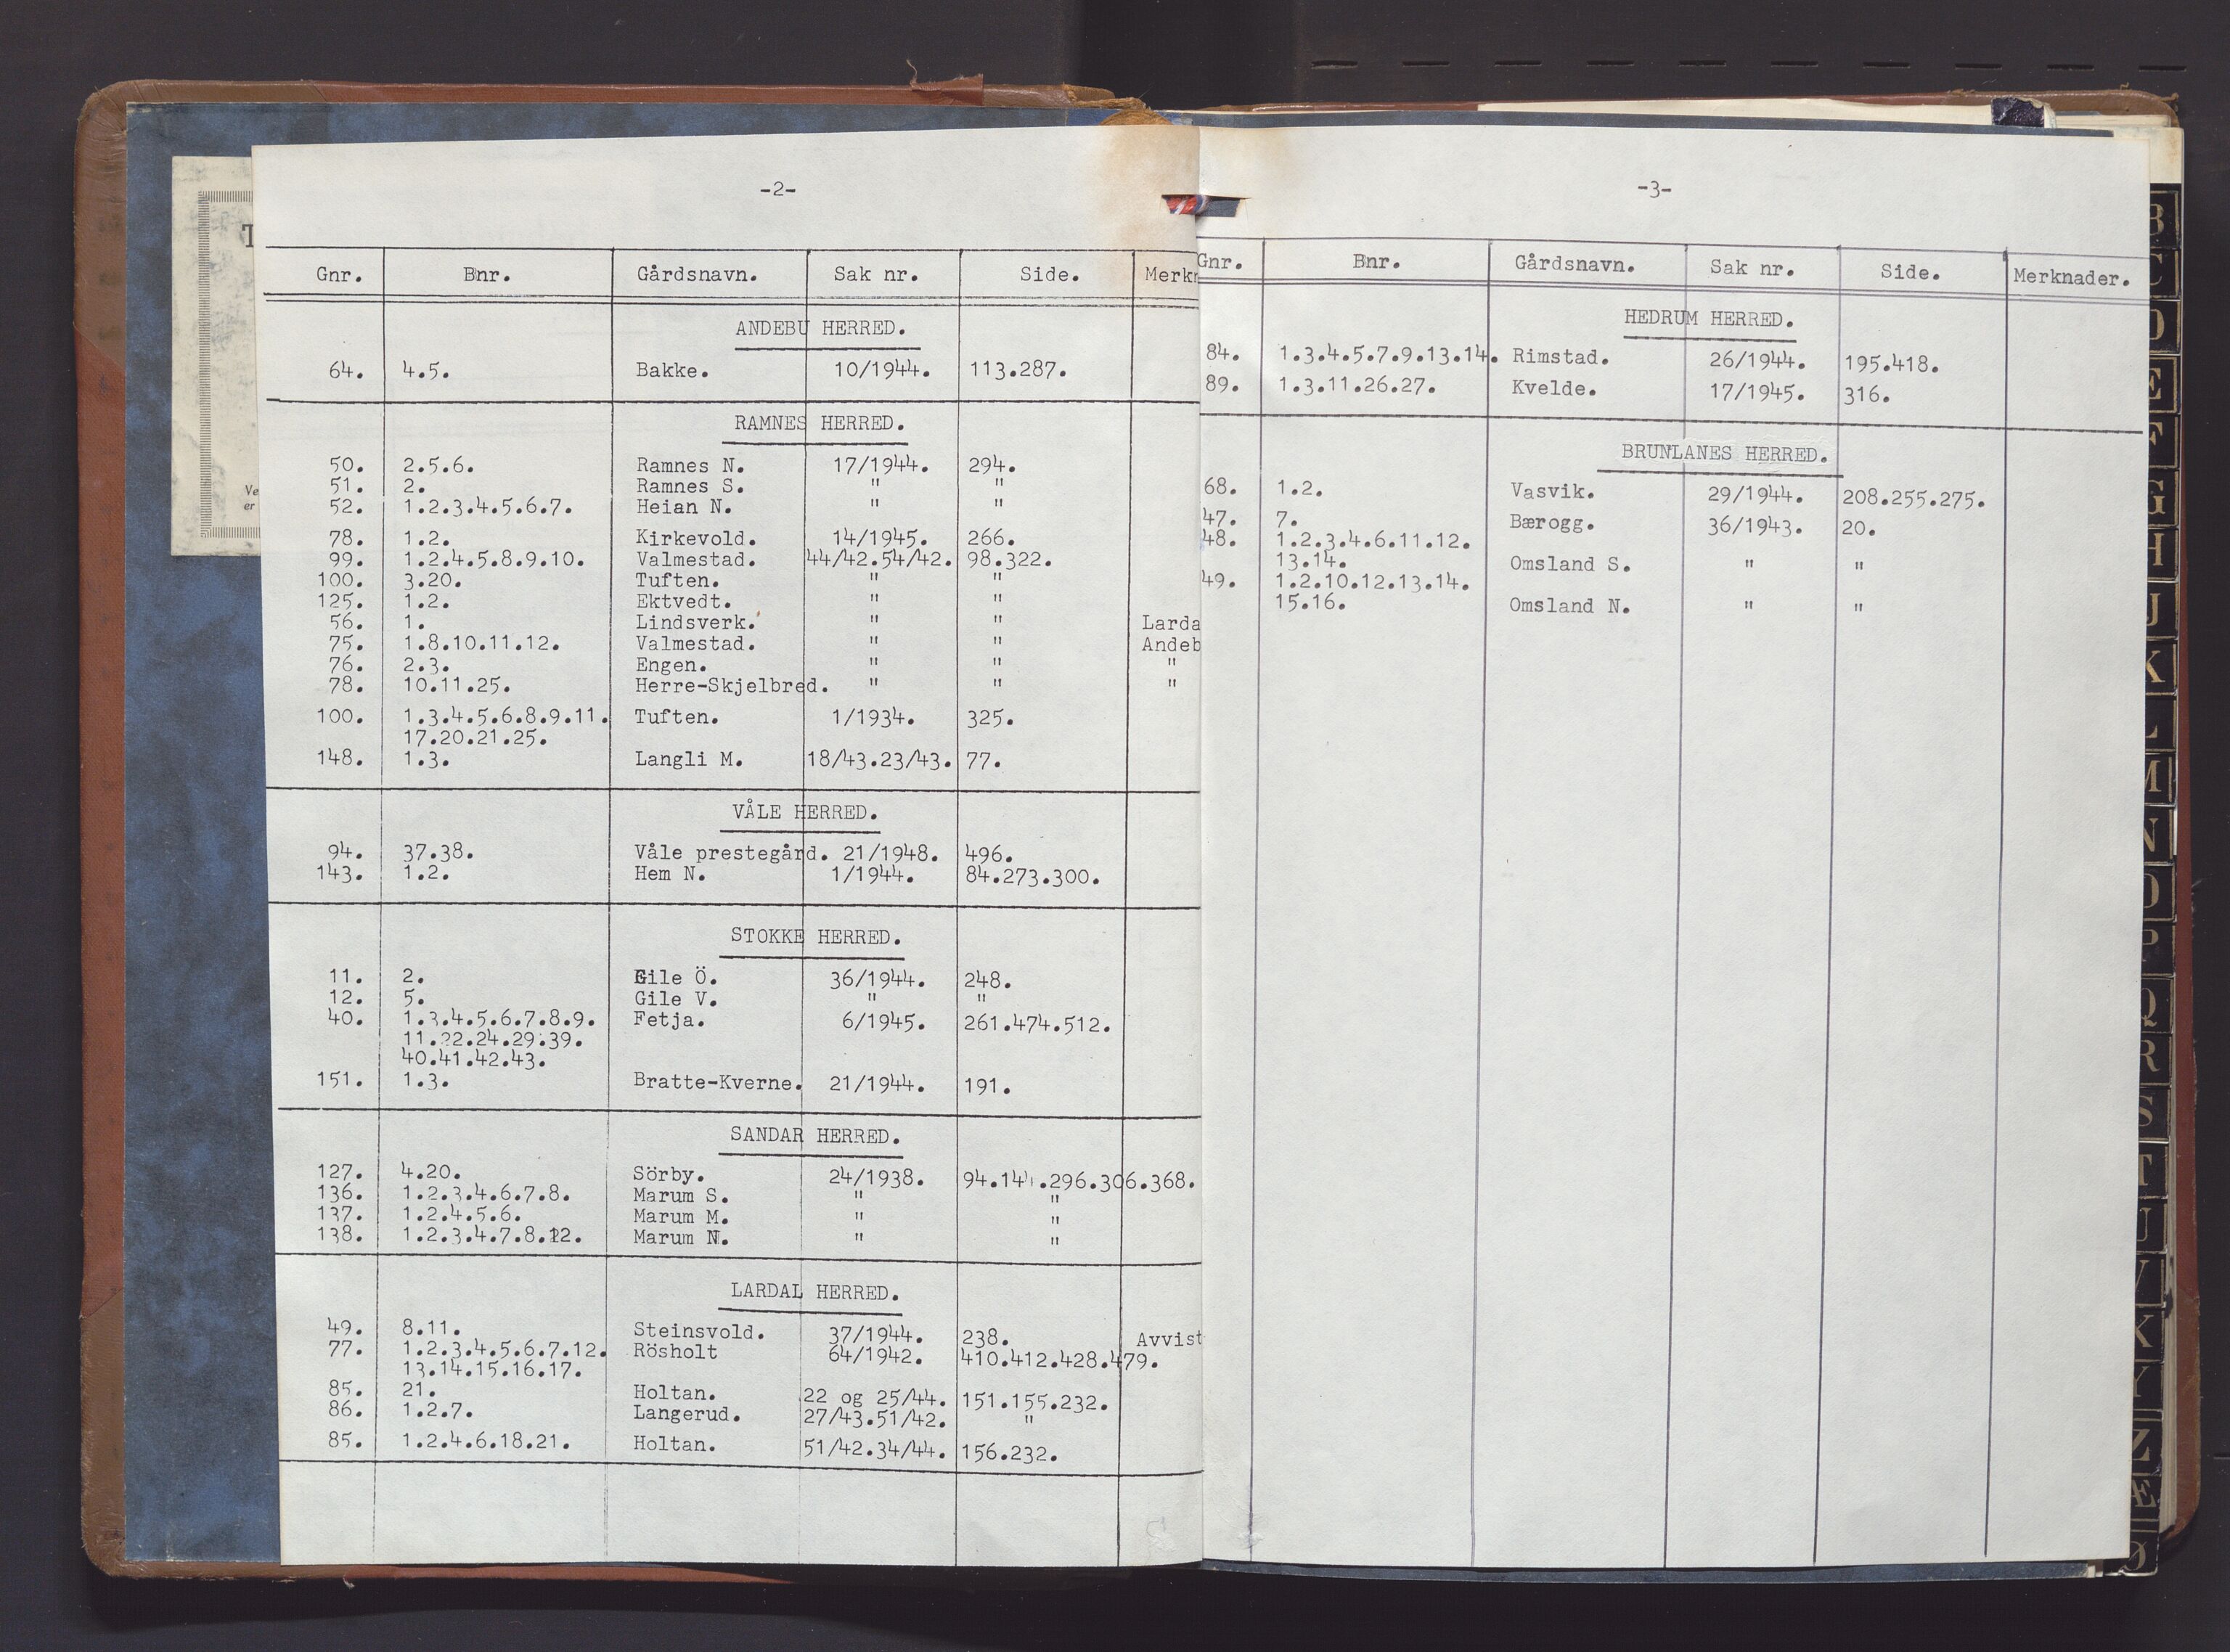 -2-
Gnr. Bnr. Gårdsnavn. Sak nr. Side. Merkn
ANDEBU HERRED.
64. 4.5. Bakke. 10/1944. 113.287.
RAMNES HERRED.
50. 2.5.6. Ramnes N. 17/1944. 294.
51. 2. Ramnes S. " "
52. 1.2.3.4.5.6.7. Heian N. " "
78. 1.2. Kirkevold. 14/1945. 266.
99. 1.2.4.5.8.9.10. Valmestad. 44/42.54/42. 98.322.
100. 3.20. Tuften. " "
125. 1.2. Ektvedt. " "
56. 1. Lindsverk. " " Larda
75. 1.8.10.11.12. Valmestad. " " Andeb
76. 2.3. Engen. " " "
78. 10.11.25. Herre-Skjelbred. " " "
100. 1.3.4.5.6.8.9.11. Tuften. 1/1934. 325.
17.20.21.25.
148. 1.3. Langli M. 18/43.23/43. 77.
VÅLE HERRED.
94. 37.38. Våle prestegård. 21/1948. 496.
143. 1.2. Hem N. 1/1944. 84.273.300.
STOKKE HERRED.
11. 2. Gile Ö. 36/1944. 248.
12. 5. Gile V. " "
40. 1.3.4.5.6.7.8.9. Fetja. 6/1945. 261.474.512.
11.22.24.29.39.
40.41.42.43.
151. 1.3. Bratte-Kverne. 21/1944. 191.
SANDAR HERRED.
127. 4.20. Sörby. 24/1938. 94. .296.306.368.
136. 1.2.3.4.6.7.8. Marum S. " "
137. 1.2.4.5.6. Marum M. " "
138. 1.2.3.4.7.8.12. Marum N. " "
LARDAL HERRED.
49. 8.11. Steinsvold. 37/1944. 238. Avvist
77. 1.2.3.4.5.6.7.12. Rösholt 64/1942. 410.412.428.479.
13.14.15.16.17.
85. 21. Holtan. 22 og 25/44. 151.155.232.
86. 1.2.7. Langerud. 27/43.51/42. "
85. 1.2.4.6.18.21. Holtan. 51/42.34/44. 156.232.
-3-
Gnr. Bnr. Gårdsnavn. Sak nr. Side. Merknader.
HEDRUM HERRED.
84. 1.3.4.5.7.9.13.14. Rimstad. 26/1944. 195.418.
89. 1.3.11.26.27. Kvelde. 17/1945. 316.
BRUNLANES HERRED.
68. 1.2. Vasvik. 29/1944. 208.255.275.
47. 7. Bærogg. 36/1943. 20.
48. 1.2.3.4.6.11.12.
13.14. Omsland S. " "
49. 1.2.10.12.13.14.
15.16. Omsland N. " "
T
Ve
er
B
C
D
E
F
G
H
J
K
L
M
N
O
P
Q
R
S
T
U
V
X
Y
Z
Æ
Ø